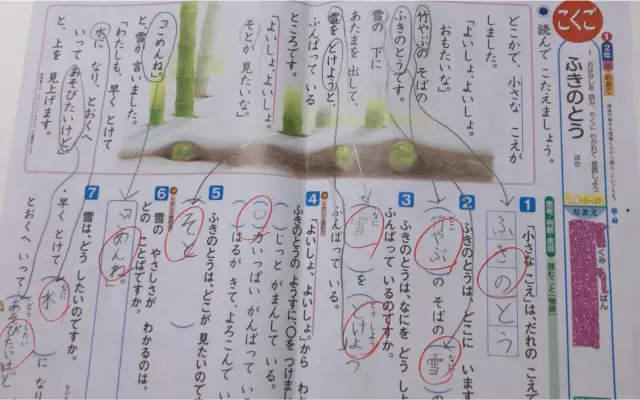 こくご
2年
ふきのとう
おはなしを 読み、やくに わかれて 音読しよう
ほか
10~27
なまえ
くみ
ばん
思考・判断・表現
読むこと【物語】
●読んで こたえましょう。
どこかで、小さな こえが
しました。
「よいしょ、よいしょ。
おもたいな。」
竹やぶの そばの
ふきのとうです。
雪の 下に
あたまを 出して、
雪を どけようと、
ふんばって いる
ところです。
「よいしょ、よいしょ。
そとが 見たいな。」
「ごめんね。」
と、雪が 言いました。
「わたしも、早く とけて
水に なり、とおくへ
いって あそびたいけど。」
と、上を 見上げます。
1
「小さな こえ」は、だれの こえで
ふきのとう
2
ふきのとうは、どこに います
どこ
(竹やぶ)の そばの
なに
(雪)
3
ふきのとうは、なにを どう しよ
ふんばって いるのですか。
なに
(雪)を
どうしよう
(どけよう)
ふんばって いる。
4
「よいしょ、よいしょ。」から わか
ふきのとうの ようすに ○を つけまし
( )じっと がまんして いる。
(○)カいっぱい がんばって いる
( )はるが きて、よろこんで い
5
ふきのとうは、どこが 見たいので
(そと)
6
雪の やさしさが わかるのは、
どの ことばですか。
「ごめんね。」
7
雪は、どう したいのですか。
・早く とけて
なに
(水)に なり
とおくへ いって
(あそびたいけど